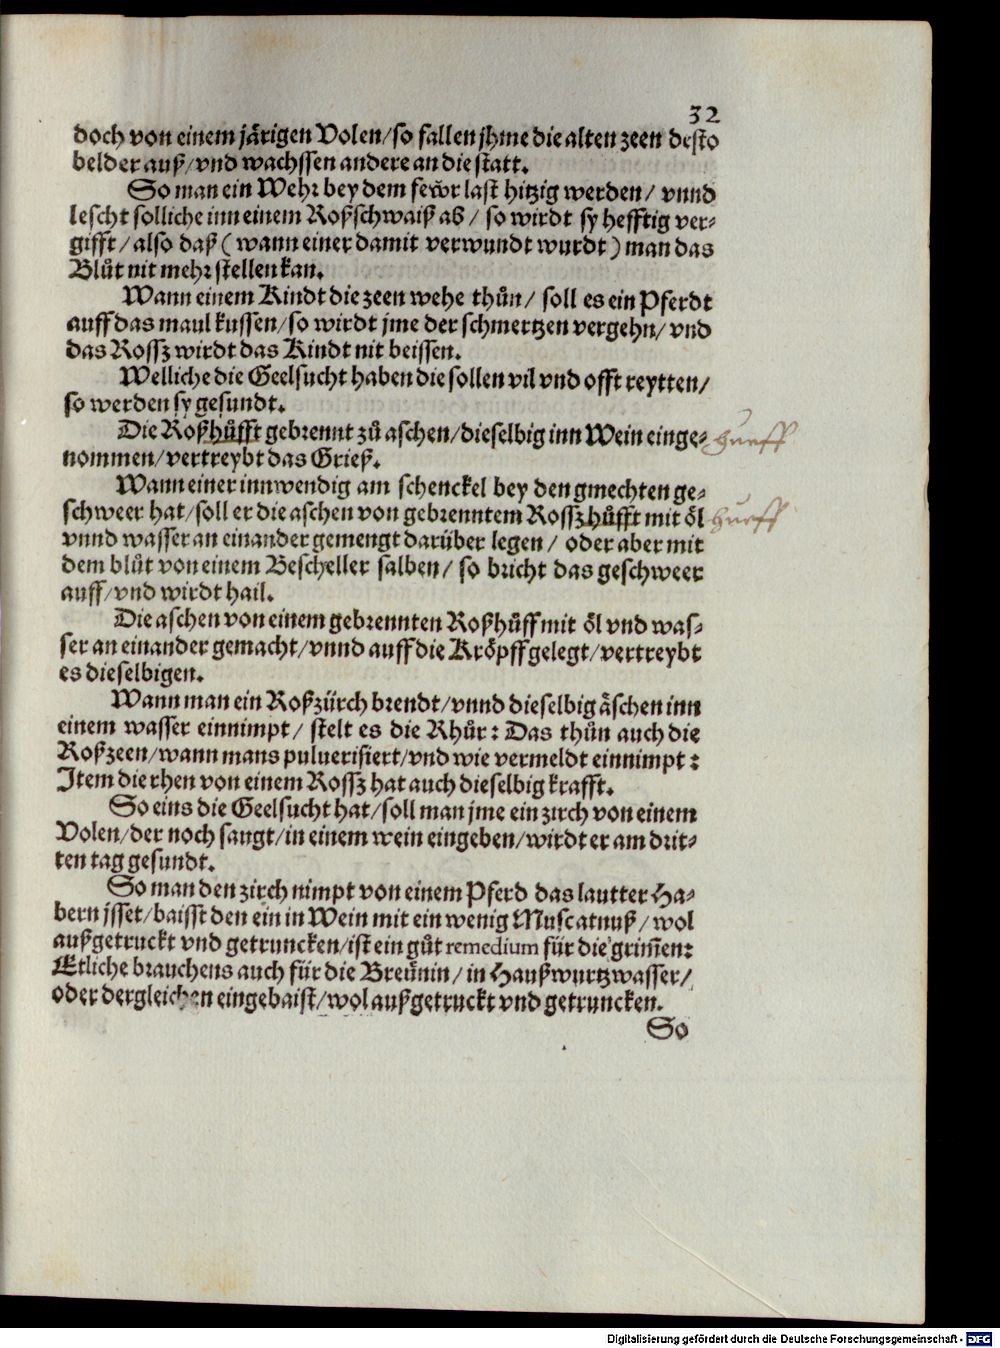 32
doch von einem järigen Volen/so fallen jhme die alten zeen desto
belder auß/vnd wachssen andere an die statt.
So man ein Wehr bey dem fewr last hitzig werden/ vnnd
lescht solliche inn einem Roßschwaiß ab/ so wirdt sy hefftig ver-
gifft/also daß (wann einer damit verwundt wurdt) man das
Blůt nit mehr stellen kan.
Wann einem Kindt die zeen wehe thůn/ soll es ein Pferdt
auff das maul kussen/so wirdt jme der schmertzen vergehn/vnd
das Rossz wirdt das Kindt nit beissen.
Welliche die Geelsucht haben die sollen vil vnd offt reytten/
so werden sy gesundt.
Die Roßhůfft gebrennt zů aschen/dieselbig inn Wein einge- hueff
nommen/vertreybt das Grieß.
Wann einer innwendig am schenckel bey den gmechten ge-
schweer hat/soll er die aschen von gebrenntem Rossz hůfft mit öl hueff
vnnd wasser an einander gemengt darüber legen/ oder aber mit
dem blůt von einem Bescheller salben/ so bricht das geschweer
auff/vnd wirdt hail.
Die aschen von einem gebrennten Roßhůff mit öl vnd was-
ser an einander gemacht/vnnd auff die Kröpff gelegt/vertreybt
es dieselbigen.
Wann man ein Roßzürch brendt/vnnd dieselbig äschen inn
einem wasser einnimpt/ stelt es die Rhůr: Das thůn auch die
Roßzeen/wann mans puluerisiert/vnd wie vermeldt einnimpt:
Item die rhen von einem Rossz hat auch dieselbig krafft.
So eins die Geelsucht hat/soll man jme ein zirch von einem
Volen/der noch saugt/in einem wein eingeben/wirdt er am drit-
ten tag gesundt.
So man den zirch nimpt von einem Pferd das lautter Ha-
bern jsset/baisst den ein in Wein mit ein wenig Muscatnuß/wol
außgetruckt vnd getruncken/ist ein gůt remedium für die grim̄en:
Etliche brauchens auch für die Breünin/in Haußwurtzwasser/
oder dergleichen eingebaist/wol außgetruckt vnd getruncken.
So
Digitalisierung gefördert durch die Deutsche Forschungsgemeinschaft - DFG